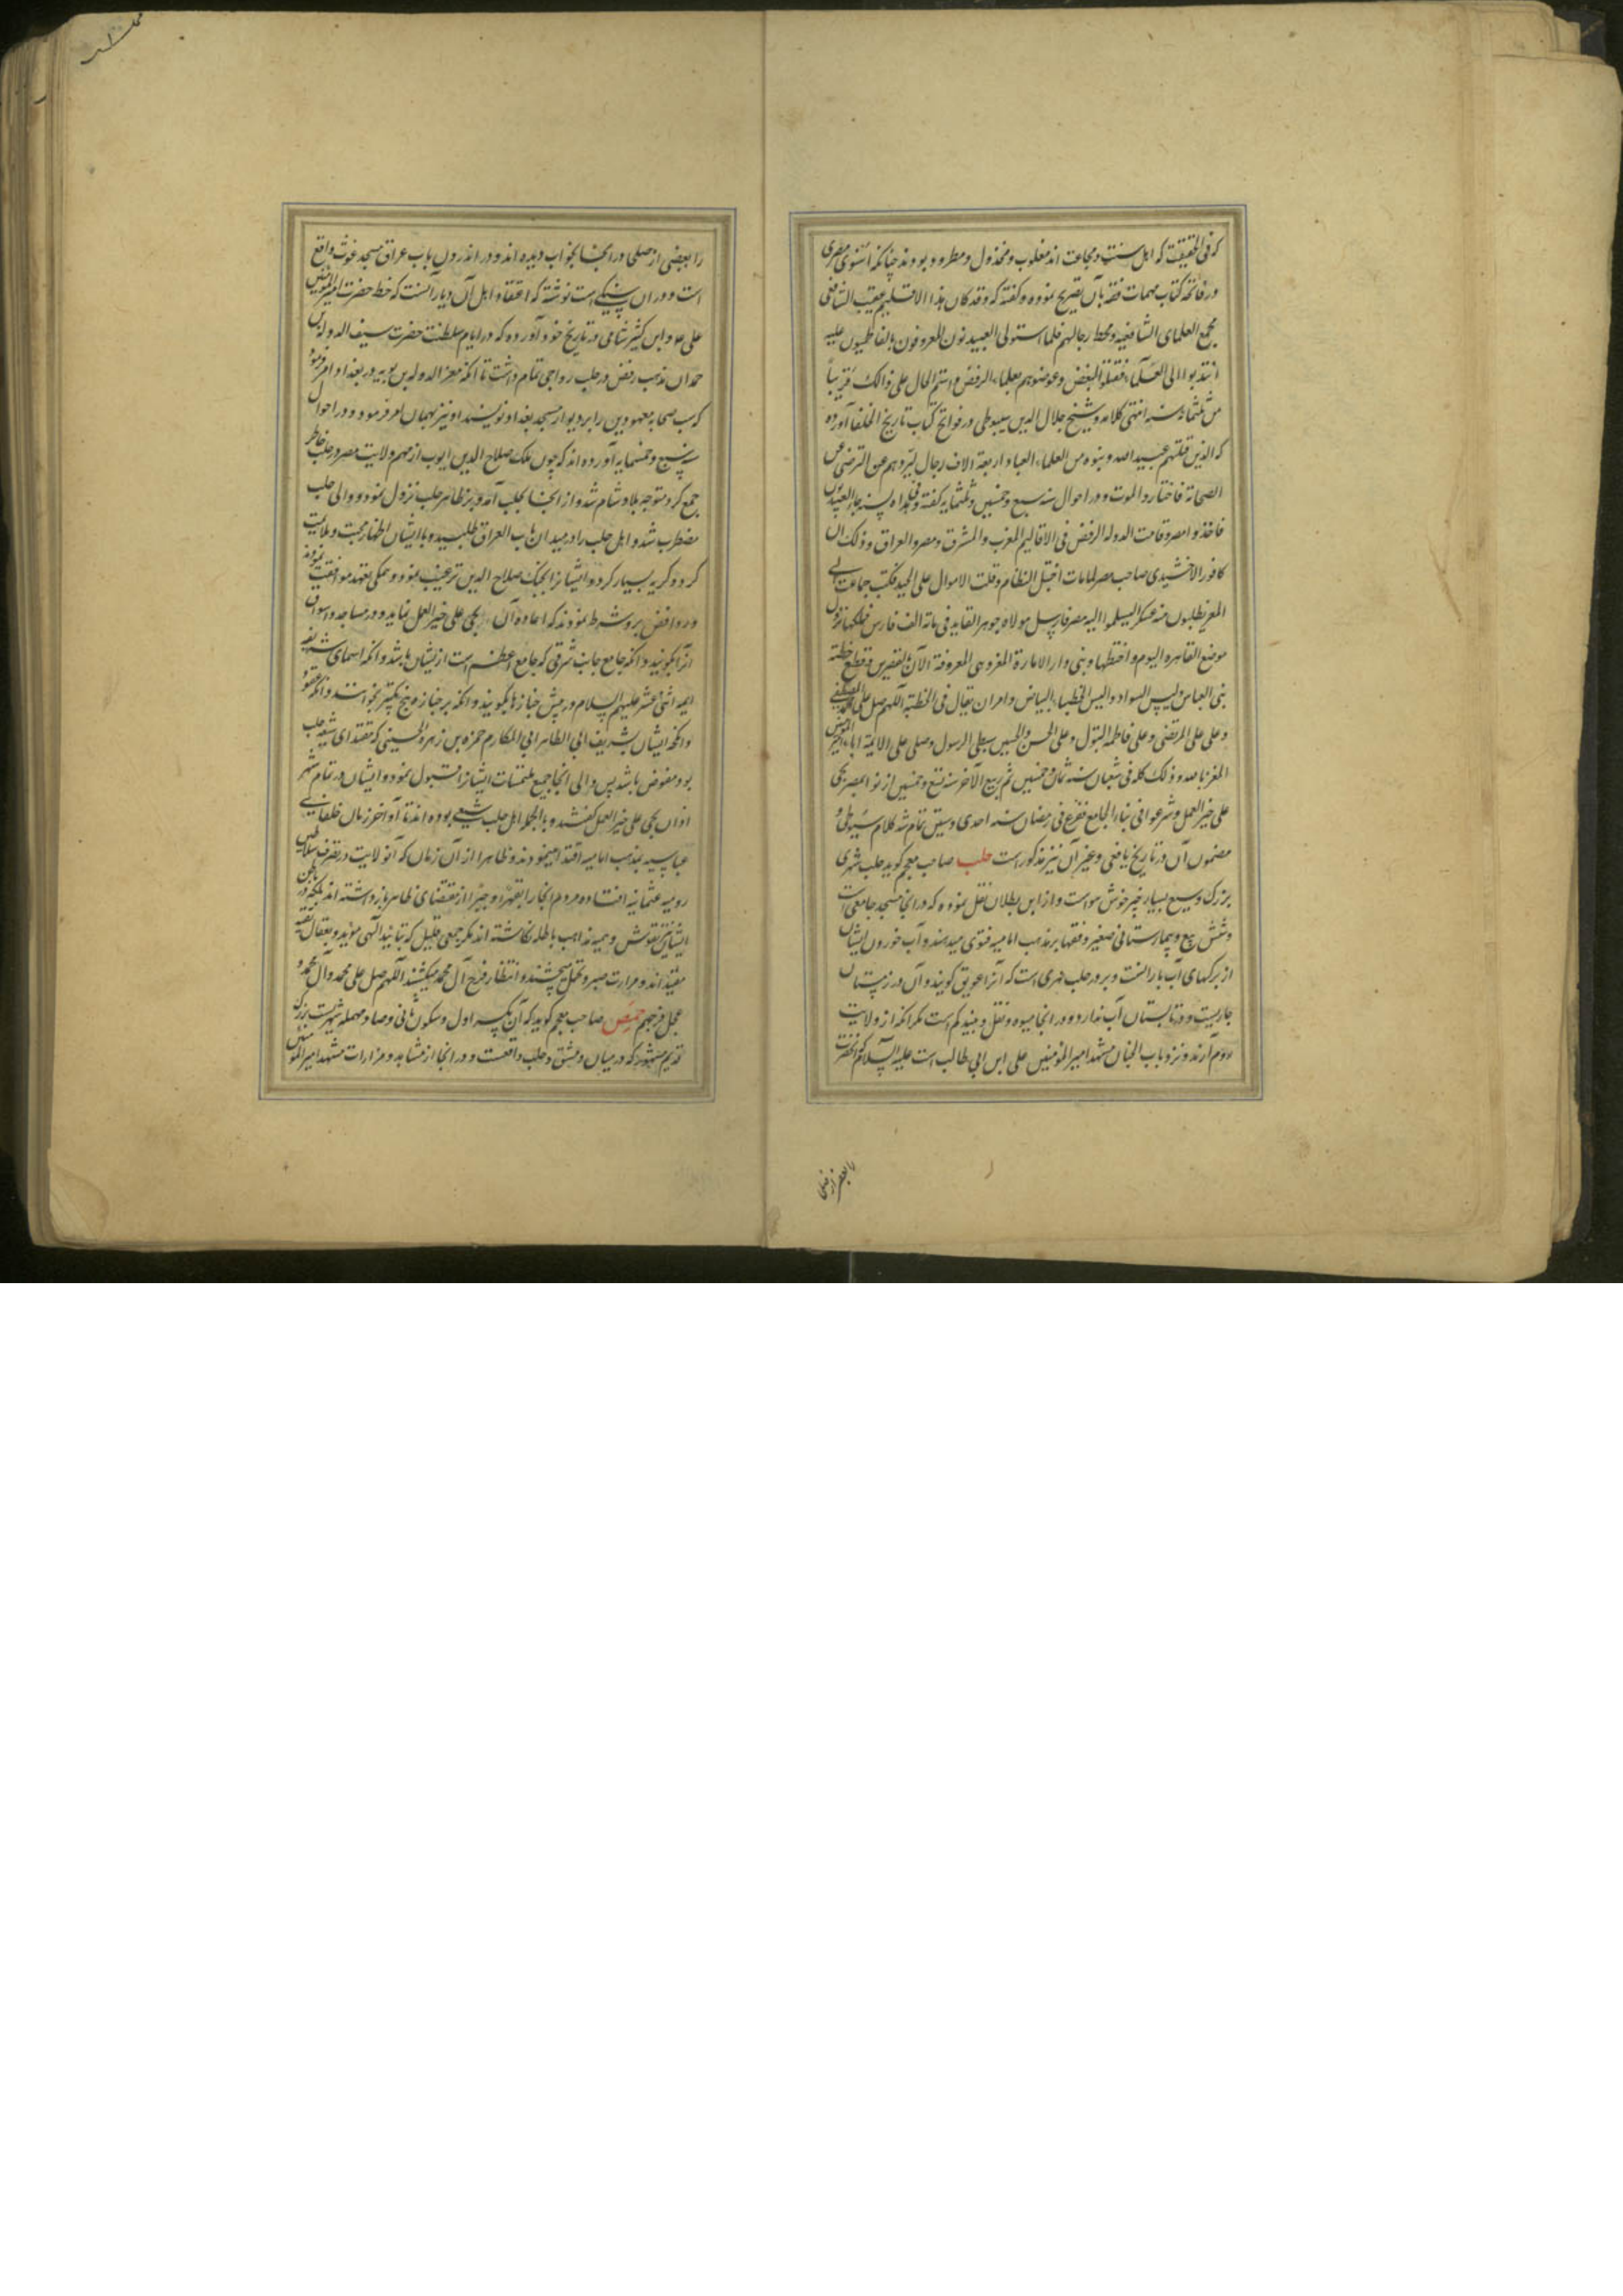 که فی الحقیقت که اهل سنت و جماعت اند مغلوب و مخذول و مطرود بودند چنانکه اسنوی مصری
در خاتمه کتاب مهمات فقه بآن تصریح نموده و گفته که وقد کان هذا الاقلیم عقیب الشافعی
مجمع العلمای الشافعیه و محط رحالهم فلما استولی العبیدیون المعروفون بالفاطمیون علیه
انتدبوا الی العلماء فقتلوا البعض و عوضوهم بعلماء الرفض و استمر الحال علی ذالک قریباً
من ثلثمائة سنه انتهی کلامه و شیخ جلال الدین سیوطی در فواتح کتاب تاریخ الخلفا آورده
که الذین قتلهم عبید الله و بنوه من العلماء العباد اربعة الاف رجال لیردهم عن الترضی عن
الصحابة فاختاروا الموت و در احوال سنه سبع و خمسین و ثلثمایه گفته
فاخذوا مصر و قامت الدوله الرفض فی الاقالیم المغرب و المشرق و مصر و العراق و ذلک ان
کافور الاخشیدی صاحب مصر لما مات اختل النظام و قلت الاموال علی الجند فکتب جماعت الی
المعز یطلبون منه عسکر لیسلموا الیه مصر فارسل مولاه جوهر القاید فی مائة الف فارس فملکها و نزل
موضع القاهره الیوم و اختطها و بنی دار الامارة المعزی المعروفة الآن بالقصرین و قطع خطبه
بنی العباس و لبس السواد و البس الخطباء البیاض و امر ان یقال فی الخطبه اللهم صل علی محمد المصطفی
و علی علی المرتضی و علی فاطمه البتول و علی الحسن و الحسین سبطی الرسول و صلی علی الائمة اباء امیر المؤمنین
المعز بالله و ذلک کله فی شعبان سنه ثمان و خمسین ثم ربیع الآخر سنه تسع و خمسین اذنوا بمصر بحی
علی خیر العمل و شرعوا فی بناء الجامع ففرغ فی رمضان سنه احدی و ستین تمام شد کلام سیوطی و
مضمون آن در تاریخ یافعی و غیر آن نیز مذکور است حلب صاحب معجم گوید حلب شهری
بزرگ وسیع بسیار خیر خوش هواست و از ابن بطلان نقل نموده که در انجا مسجد جامعی است
و شش بیع و بیمارستانی صغیر و فقها بر مذهب امامیه فتوی میدهند و آب خوردن ایشان
از برکهای آب بارانست و بر در حلب نهری است که آنرا عویق گویند و آن در زمستان
جاریست و در تابستان آب ندارد و در انجا میوه و نقل و نبید کم است مگر آنکه از ولایت
روم آرند و نزد باب الجنان مشهد امیر المؤمنین علی ابن ابی طالب است علیه السلام که آنحضرت
را بعضی از صلحا
را بعضی از صلحا در انجا بخواب دیده اند و در اندرون باب عراق مسجد غوث واقع
است و در ان سنگی است نوشته که اعتقاد اهل آن دیار آنست که خط حضرت امیر المؤمنین
علی ع و ابن کثیر شامی در تاریخ خود آورده که در ایام سلطنت حضرت سیف الدوله بن
حمدان مذهب رفض در حلب رواجی تمام داشت تا آنکه معز الدوله بن بویه در بغداد امر فرموده
که سب صحابه معهودین را بر دیوار مسجد بغداد نویسند او نیز بهمان امر فرمود و در احوال
سنه سبع و خمسمایه آورده اند که چون ملک صلاح الدین ایوب از مهم ولایت مصر و حلب خاطر
جمع کرد متوجه بلاد شام شد و از انجا بحلب آمد و بر ظاهر حلب نزول نمود و والی حلب
مضطرب شد و اهل حلب را در میدان باب العراق طلبید و با ایشان اظهار محبت و ملایمت
کرد و گریه بسیار کرد و ایشانرا بجنک صلاح الدین ترغیب نمود و همکی بتعهد موافقت نمودند
و روافض برو شرط نمودند که اعاده آن بحی علی خیر العمل نماید و در مساجد و اسواق
انرا بگویند و آنکه جامع جانب شرقی که جامع اعظم است از ایشان باشد و آنکه اسمای شریفه
ایمه اثنی عشر علیهم السلام در پیش جنازها بگویند و آنکه بر جنازه پنج تکبیر بخوانند و آنکه عقود
و انکحه ایشان بشریف ابی الطاهر ابی المکارم حمزه بن زهره الحسینی که مقتدای شیعه حلب
بود مفوض باشد پس والی انجا جمیع ملتمسات ایشانرا قبول نمود و ایشان در تمام شهر
اذان بحی علی خیر العمل گفتند و بالجمله اهل حلب شیعی بوده اند تا آواخر زمان خلفای
عباسیه بمذهب امامیه اقتدا مینمودند و ظاهرا از آن زمان که آنولایت در تصرف سلاطین
رومیه عثمانیه افتاده مردم انجا را بقهر و جبر از مقتضای ظاهر بازداشته اند بلکه در باطن
ایشان نیز نقوش وهمیه مذاهب باطله نگاشته اند مگر جمعی قلیل که بتایید آلهی مؤید و بعقال تقیه
مقیدند اند و مرارت صبر و تحمل میچشند و انتظار فرج آل محمد میکشند اللهم صل علی محمد و آل محمد و
عجل فرجهم حمص صاحب معجم گوید که آن بکسر اول و سکون ثانی و صاد مهمله شهریست بزرگ
قدیم مشهور که در میان دمشق و حلب واقعست و در انجا از مشاهد و مزارات مشهد امیر المؤمنین